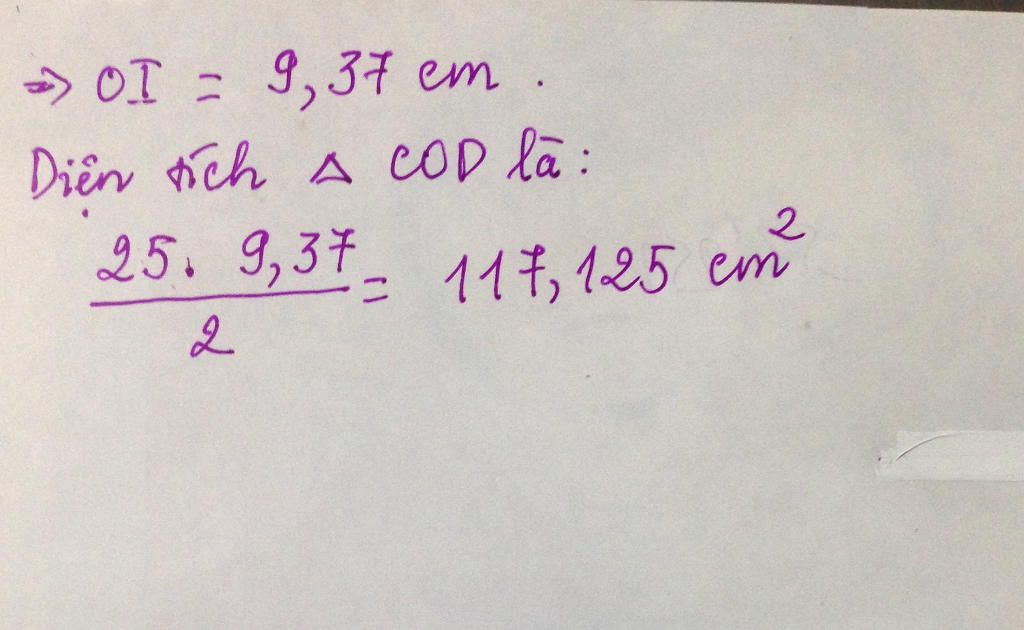 => OI = 9,37 cm .
Diện tích Δ COD là:
25. 9,37 / 2 = 117,125 cm²